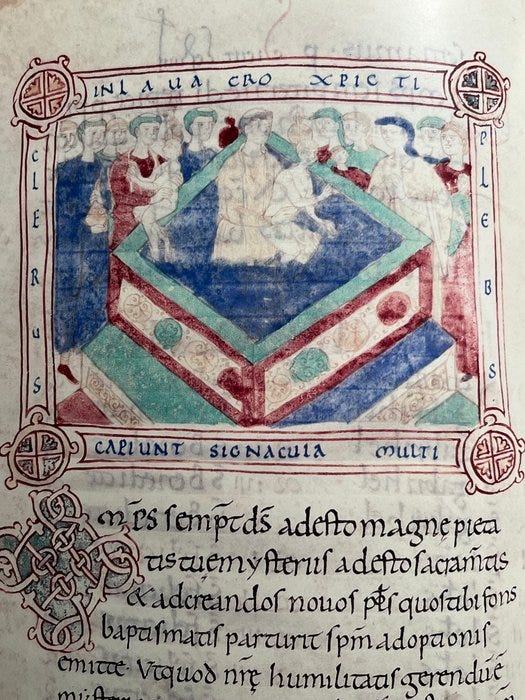 IN LAUACRO XPICTI
CLERUS
PLEBS
CAPIUNT SIGNACULA MULTI
Om̄ps sempt̄ d̄s adesto magnę pieta
tis tuę mysteriis adesto sacram̄tis
& adcreandos nouos pp̄ls quos tibi fons
baptismatis parturit sp̄m adoptionis
emitte. Ut quod nr̄ę humilitatis gerendū ē